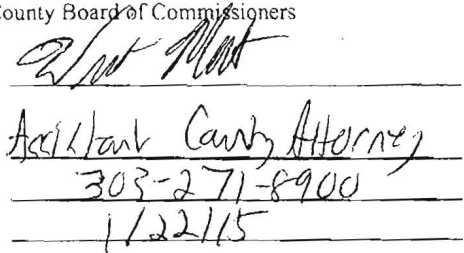 County Board of Commissioners
Assistant County Attorney
303-271-8900
1/22/15